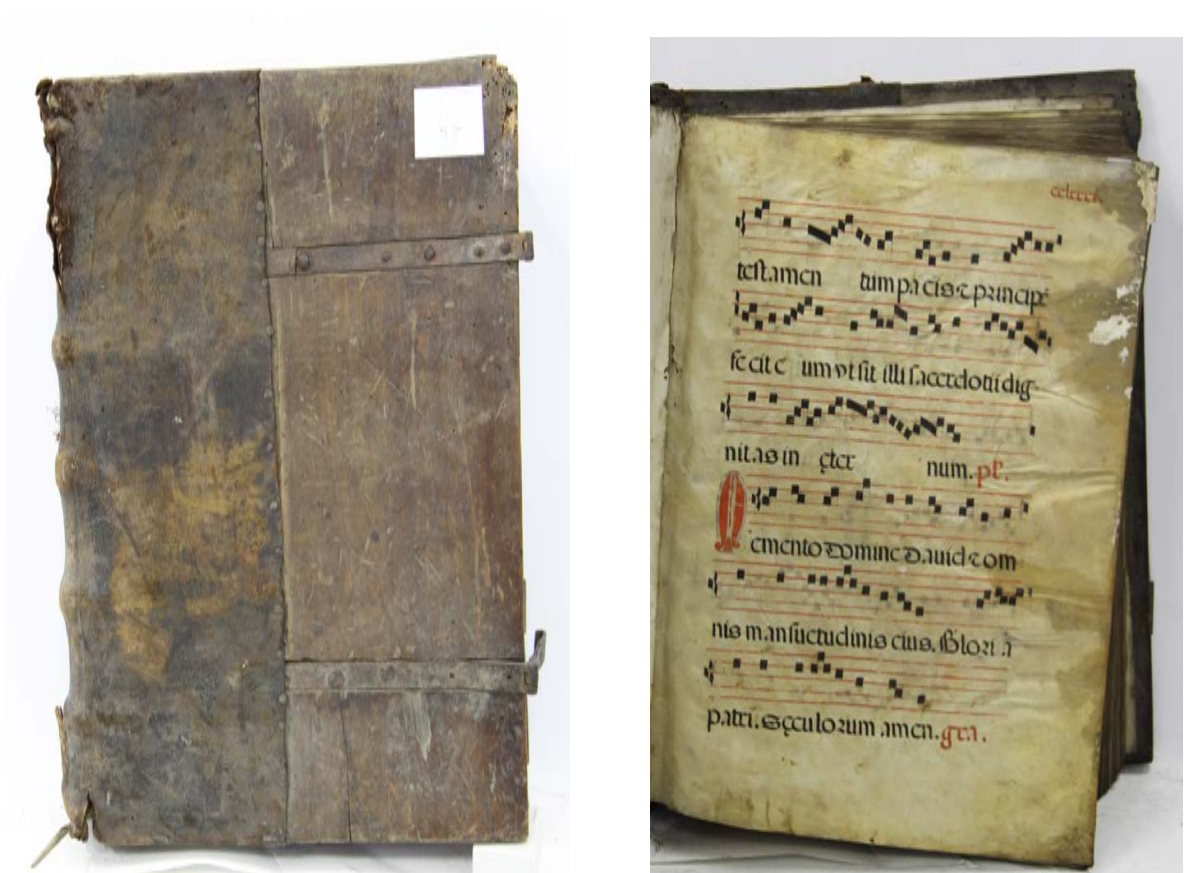 testamen tum pa cis ⁊ princip̄e
fe cit e um vt sit illi sacerdotii dig
nit.as in ęter num. ps̄.
M emento domine D.auid ⁊ om
nis m.ansuetudinis eius. Glori .a
p.atri. sęculorum .amen. gr.a.